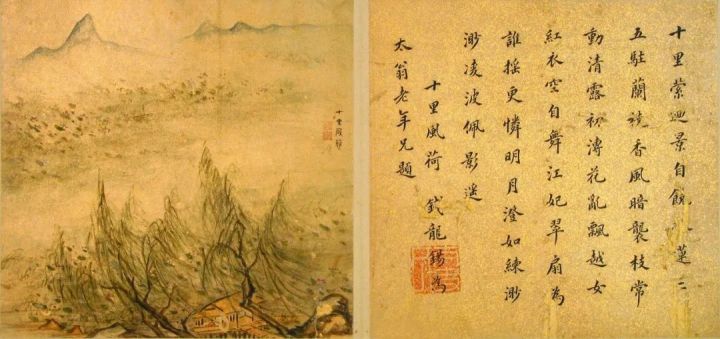 十里縈迴景自饒蓮
五駐蘭橈香風暗襲枝常
動清露初漙花亂飄越女
紅衣空自舞江妃翠扇為
誰搖更憐明月澄如練渺
渺凌波佩影遙
十里風荷 錢龍錫為
太翁老年兄題
十里